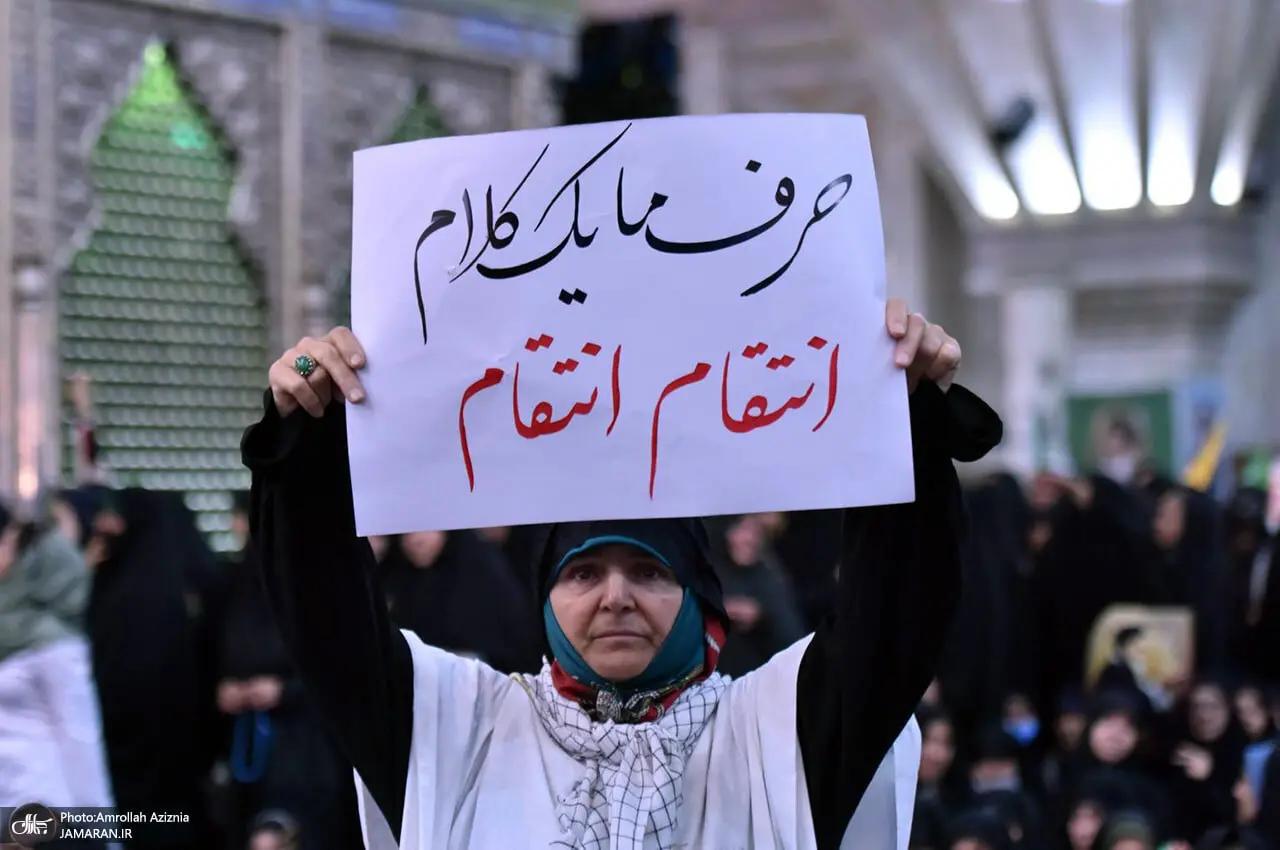 حرف ما یک کلام
انتقام انتقام
Photo:Amrollah Aziznia
JAMARAN.IR